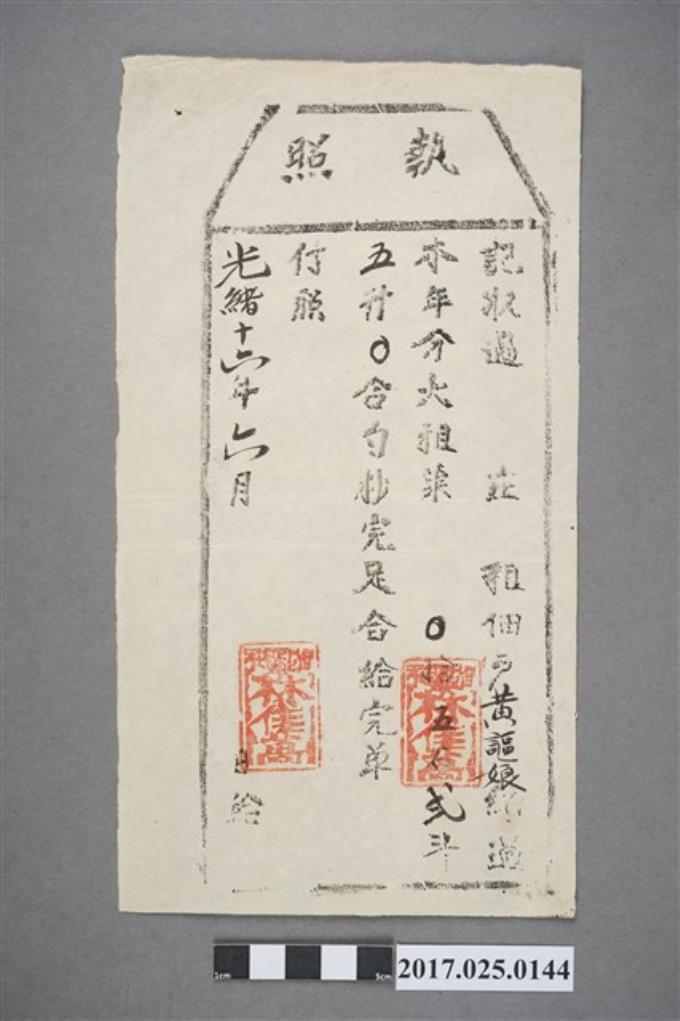 執照
記收過 庄 租佃戶黃謳娘 過
本年分大租 〇 五 弍斗
五升〇合勺抄完足合給完单
付照
光緒十六年六月 日給
林佳
林佳
1cm 5cm
2017.025.0144